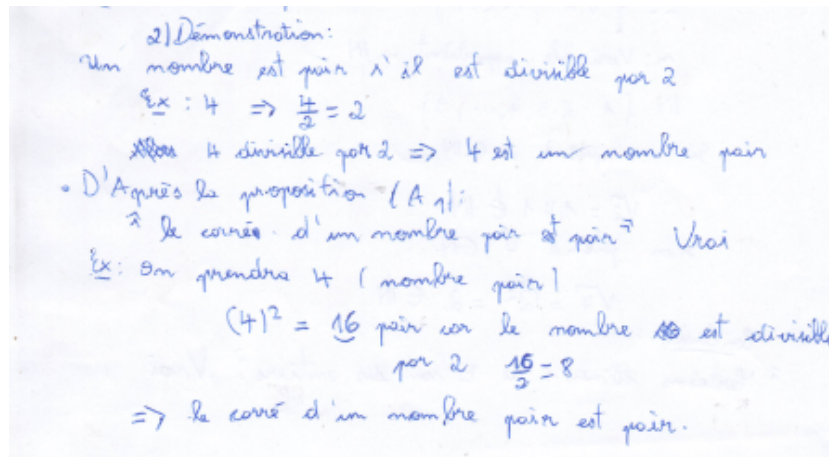 2) Démonstration:
Un nombre est pair s'il est divisible par 2
Ex : 4 => 4/2 = 2
4 divisible par 2 => 4 est un nombre pair
• D'Après la proposition (A 1):
" le carrée d'un nombre pair est pair" Vrai
Ex: on prendra 4 ( nombre pair)
(4)² = 16 pair car le nombre est divisible
par 2 16/2 = 8
=> le carré d'un nombre pair est pair.